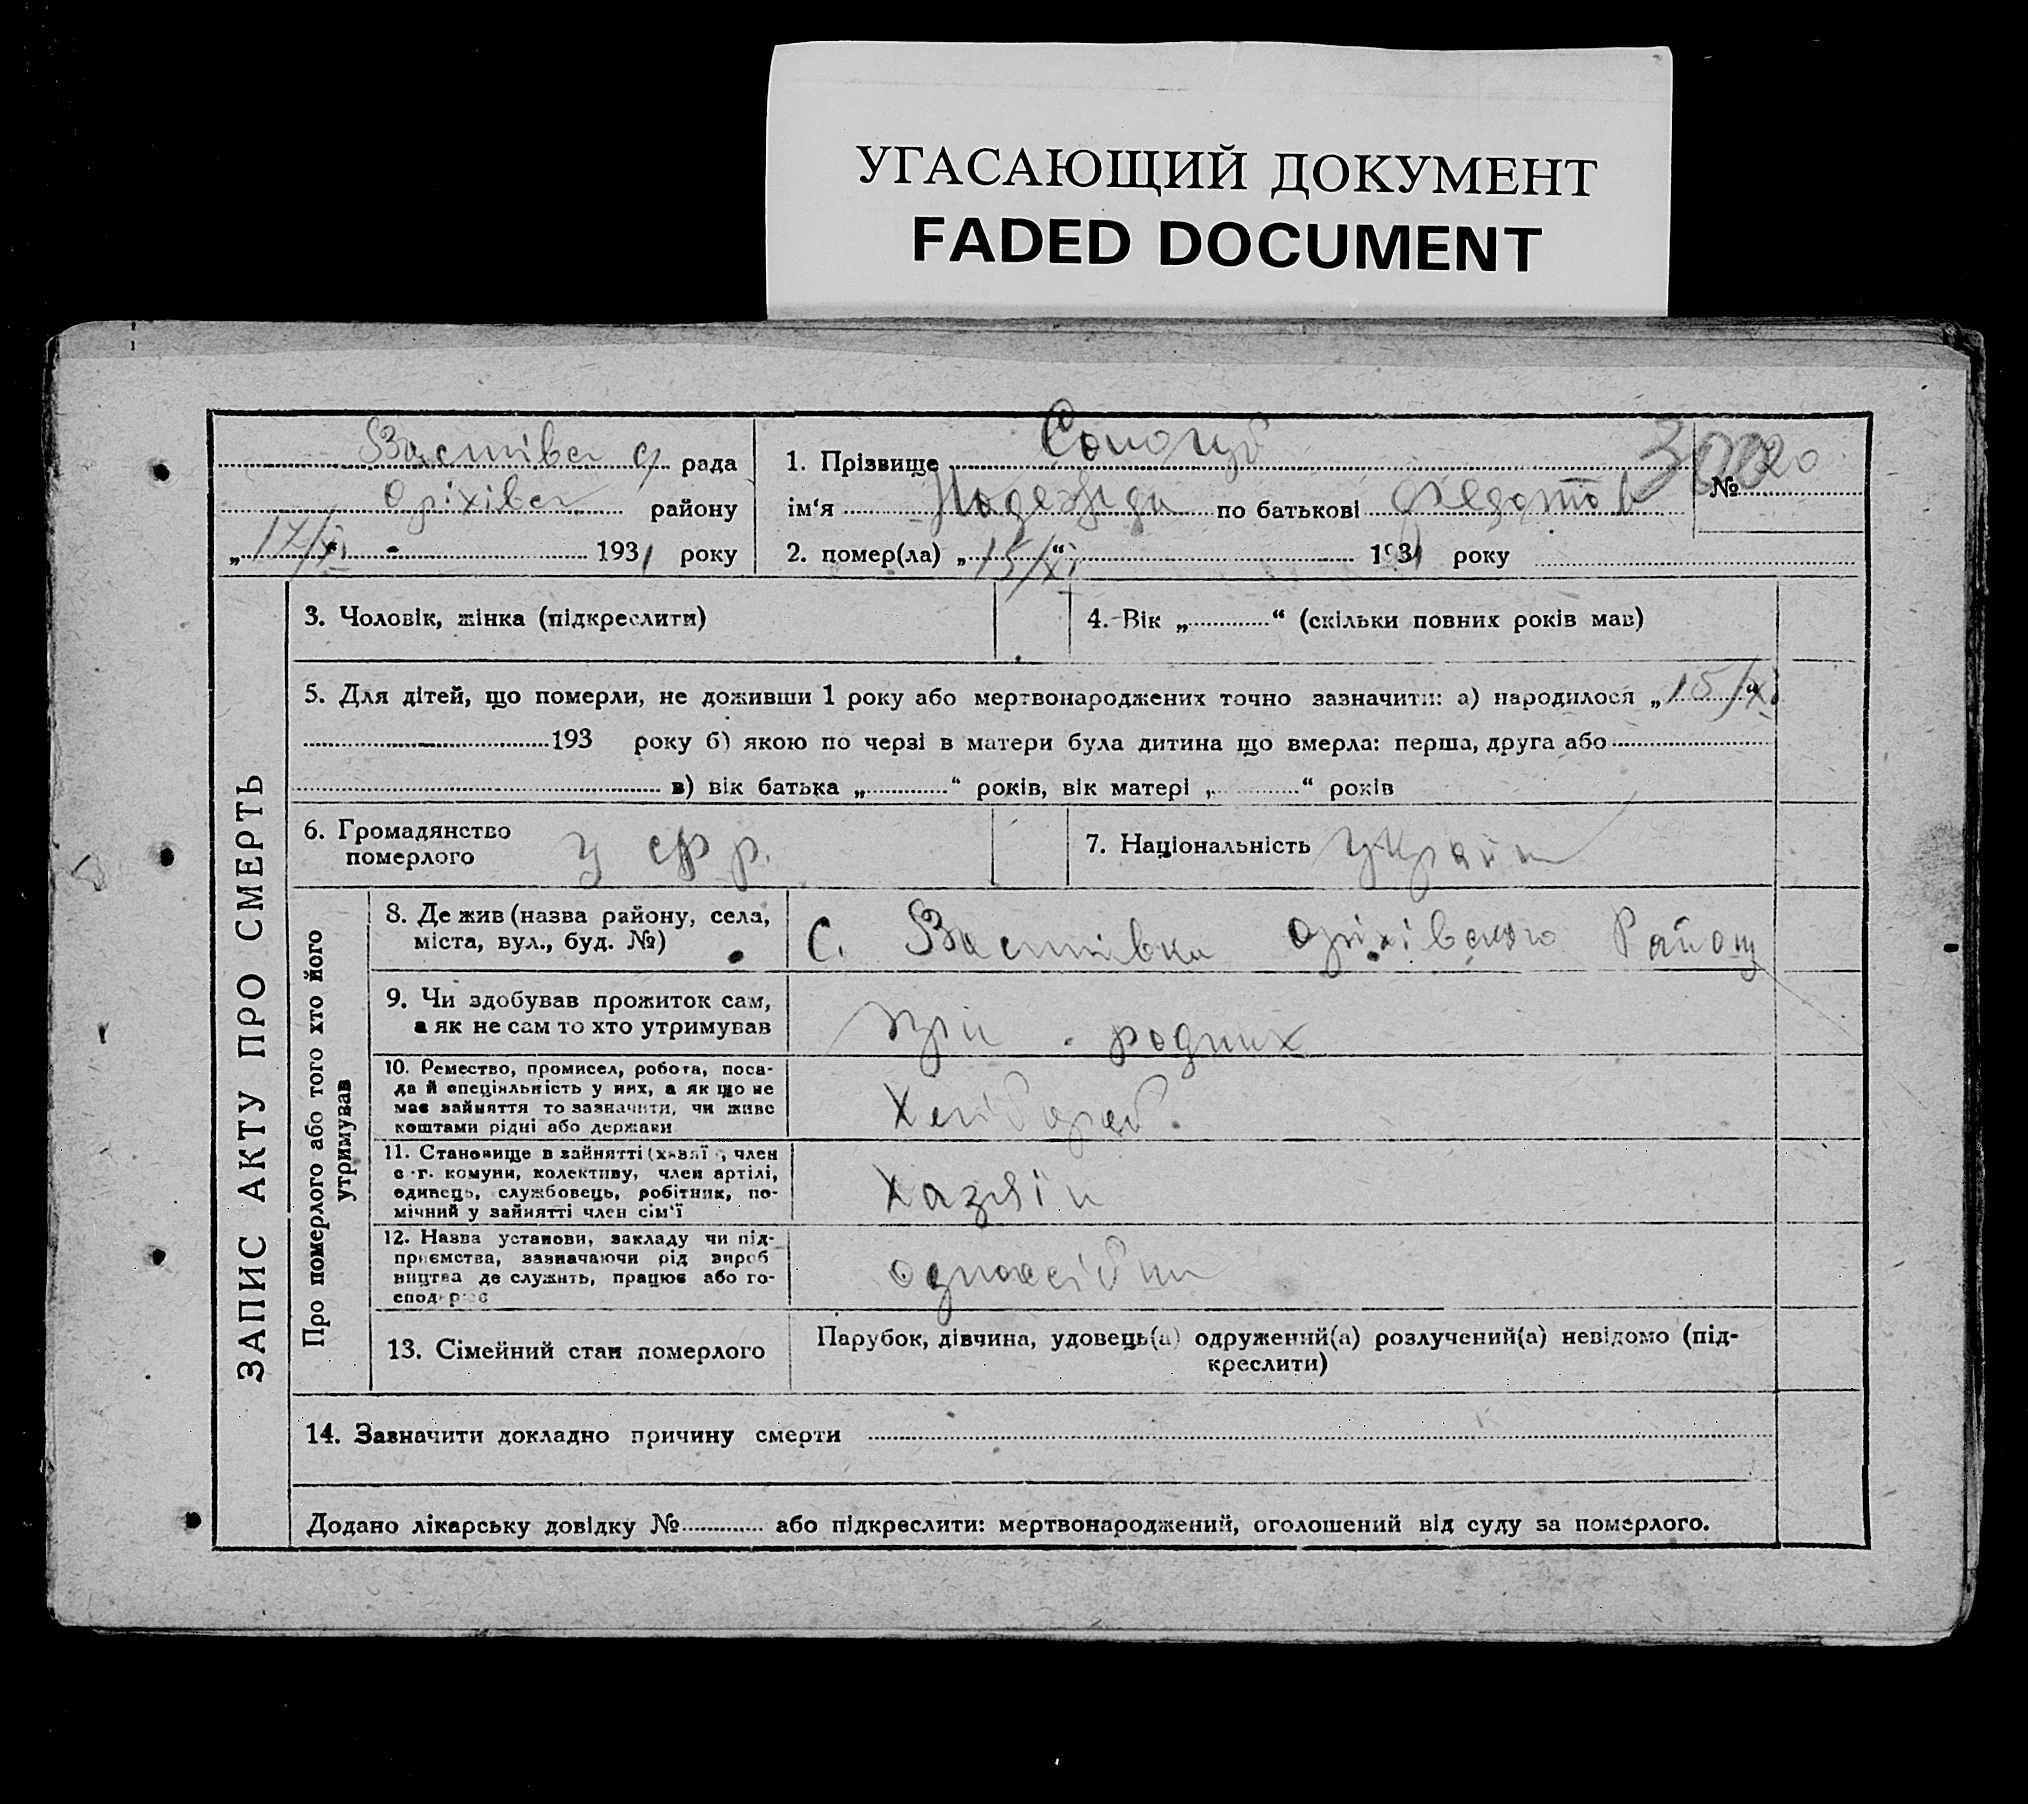 УГАСАЮЩИЙ ДОКУМЕНТ
FADED DOCUMENT
рада
Оріхівськ району
„17/XI 1931 року
1. Прізвище
ім‘я Надежда по батькові Федотов
2. помер(ла) „15/XI“ 1931 року
№
ЗАПИС АКТУ ПРО СМЕРТЬ
3. Чоловік, жінка (підкреслити)
4. Вік „ “ (скільки повних років мав)
5. Для дітей, що померли, не доживши 1 року або мертвонароджених точно зазначити: а) народилося „15/XI“
193 року б) якою по черзі в матери була дитина що вмерла: перша, друга або
в) вік батька „ “ років, вік матері „ “ років
6. Громадянство
померлого
У СРР.
7. Національність Україн
Про померлого або того хто його
утримував
8. Де жив (назва району, села,
міста, вул., буд. №)
с. Оріхівского Району
9. Чи здобував прожиток сам,
а як не сам то хто утримував
при родних
10. Ремество, промисел, робота, поса-
да й спеціяльність у них, а як що не
має зайняття то зазначити, чи живе
коштами рідні або держави
Хлібороб.
11. Становище в зайнятті (хазяї , член
с.-г. комуни, колективу, член артілі,
одинець, службовець, робітник, по-
мічний у зайнятті член сім‘ї
хазяїн
12. Назва установи, закладу чи під-
приємства, зазначаючи рід вироб
ництва де служить, працює або го-
сподарює
одноосібник
13. Сімейний стан померлого
Парубок, дівчина, удовець(а) одружений(а) розлучений(а) невідомо (під-
креслити)
14. Зазначити докладно причину смерти
Додано лікарську довідку № або підкреслити: мертвонароджений, оголошений від суду за померлого.